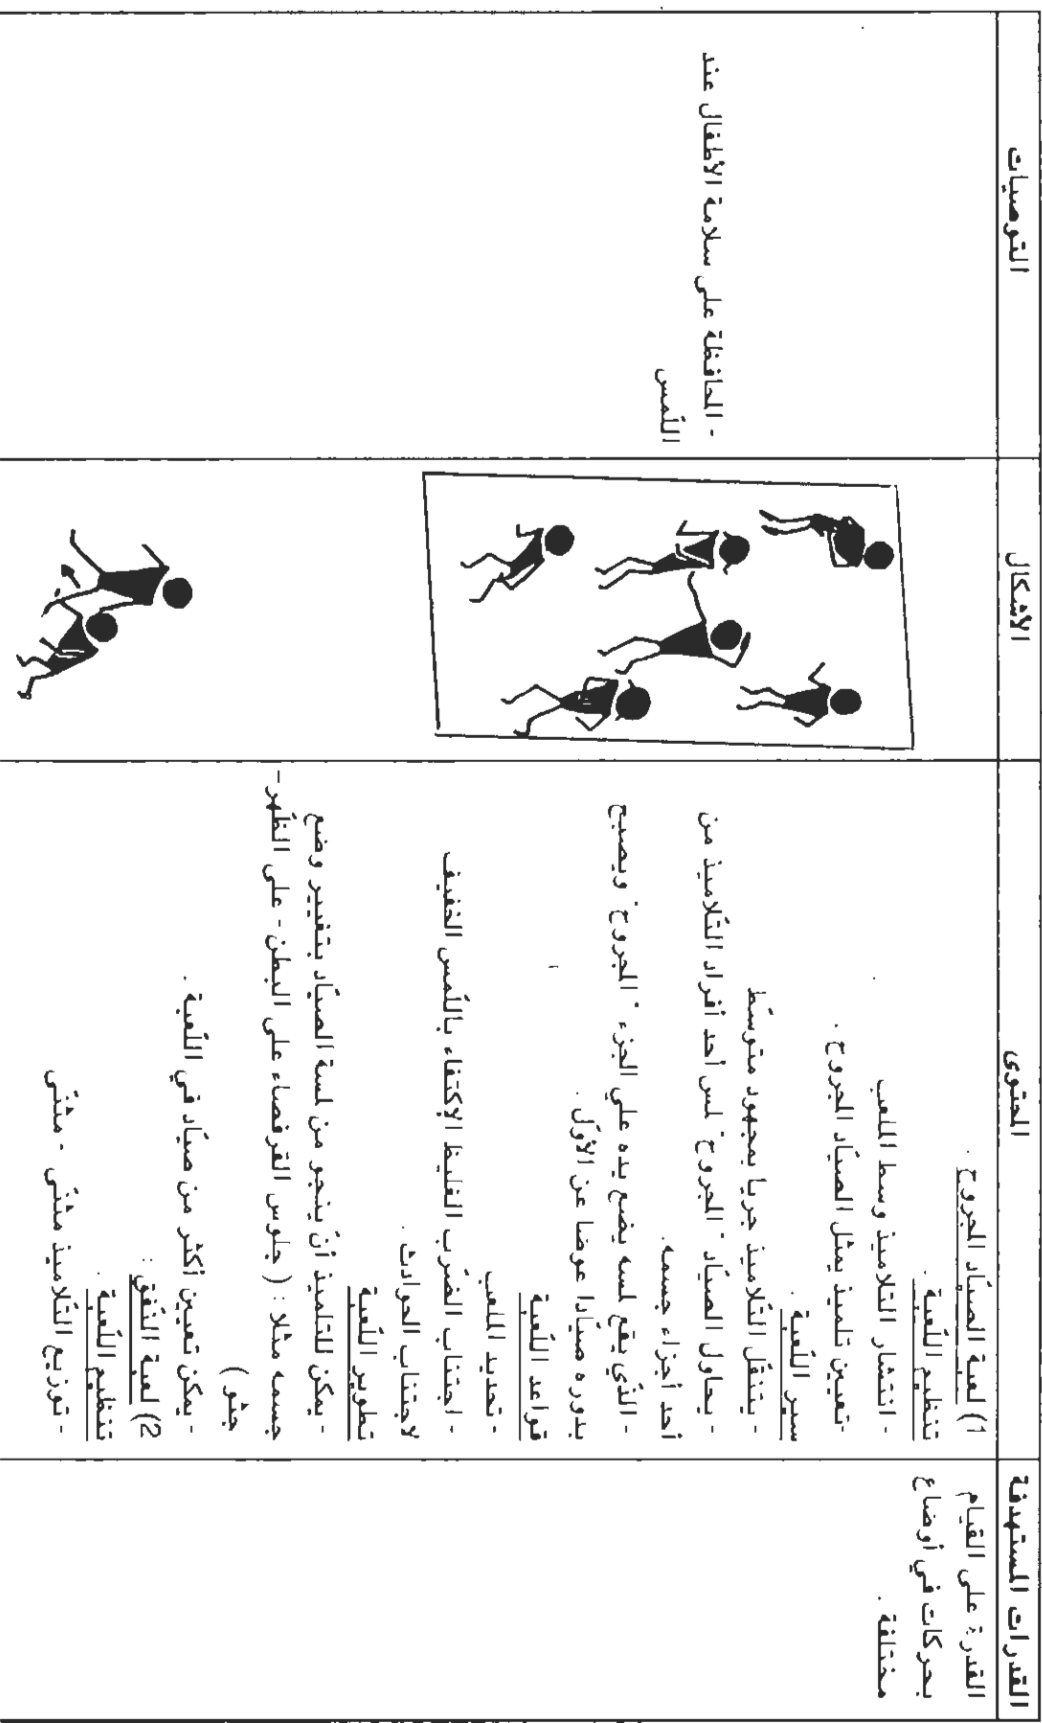 القدرات المستهدفة
المحتوى
الأشكال
التوصيات
القدرة على القيام
بحركات في أوضاع
مختلفة .
1) لعبة الصيّاد المجروح .
تنظيم اللّعبة .
- انتشار التلاميذ وسط الملعب
- تعيين تلميذ يمثل الصيّاد المجروح .
سير اللّعبة .
- يتنقل التّلاميذ جريا بمجهود متوسّط
- يحاول الصيّاد " المجروح " لمس أحد أفراد التّلاميذ من
أحد أجزاء جسمه.
- الذّي يقع لمسه يضع يده علي الجزء " المجروح " ويصبح
بدوره صيّادا عوضا عن الأوّل .
قواعد اللّعبة
- تحديد الملعب
- اجتناب الضّرب الغليظ الإكتفاء باللّمس الخفيف
لاجتناب الحوادث .
تطوير اللّعبة
- يمكن للتلميذ أنّ ينجو من لمسة الصيّاد بتغيير وضع
جسمه مثلا : ( جلوس القرفصاء على البطن - على الظّهر -
جثو )
- يمكن تعيين أكثر من صيّاد في اللّعبة .
2) لعبة النّفق :
تنظيم اللّعبة .
- توزيع التّلاميذ مثنّى - مثنّى
- المحافظة على سلامة الأطفال عند
اللّمس